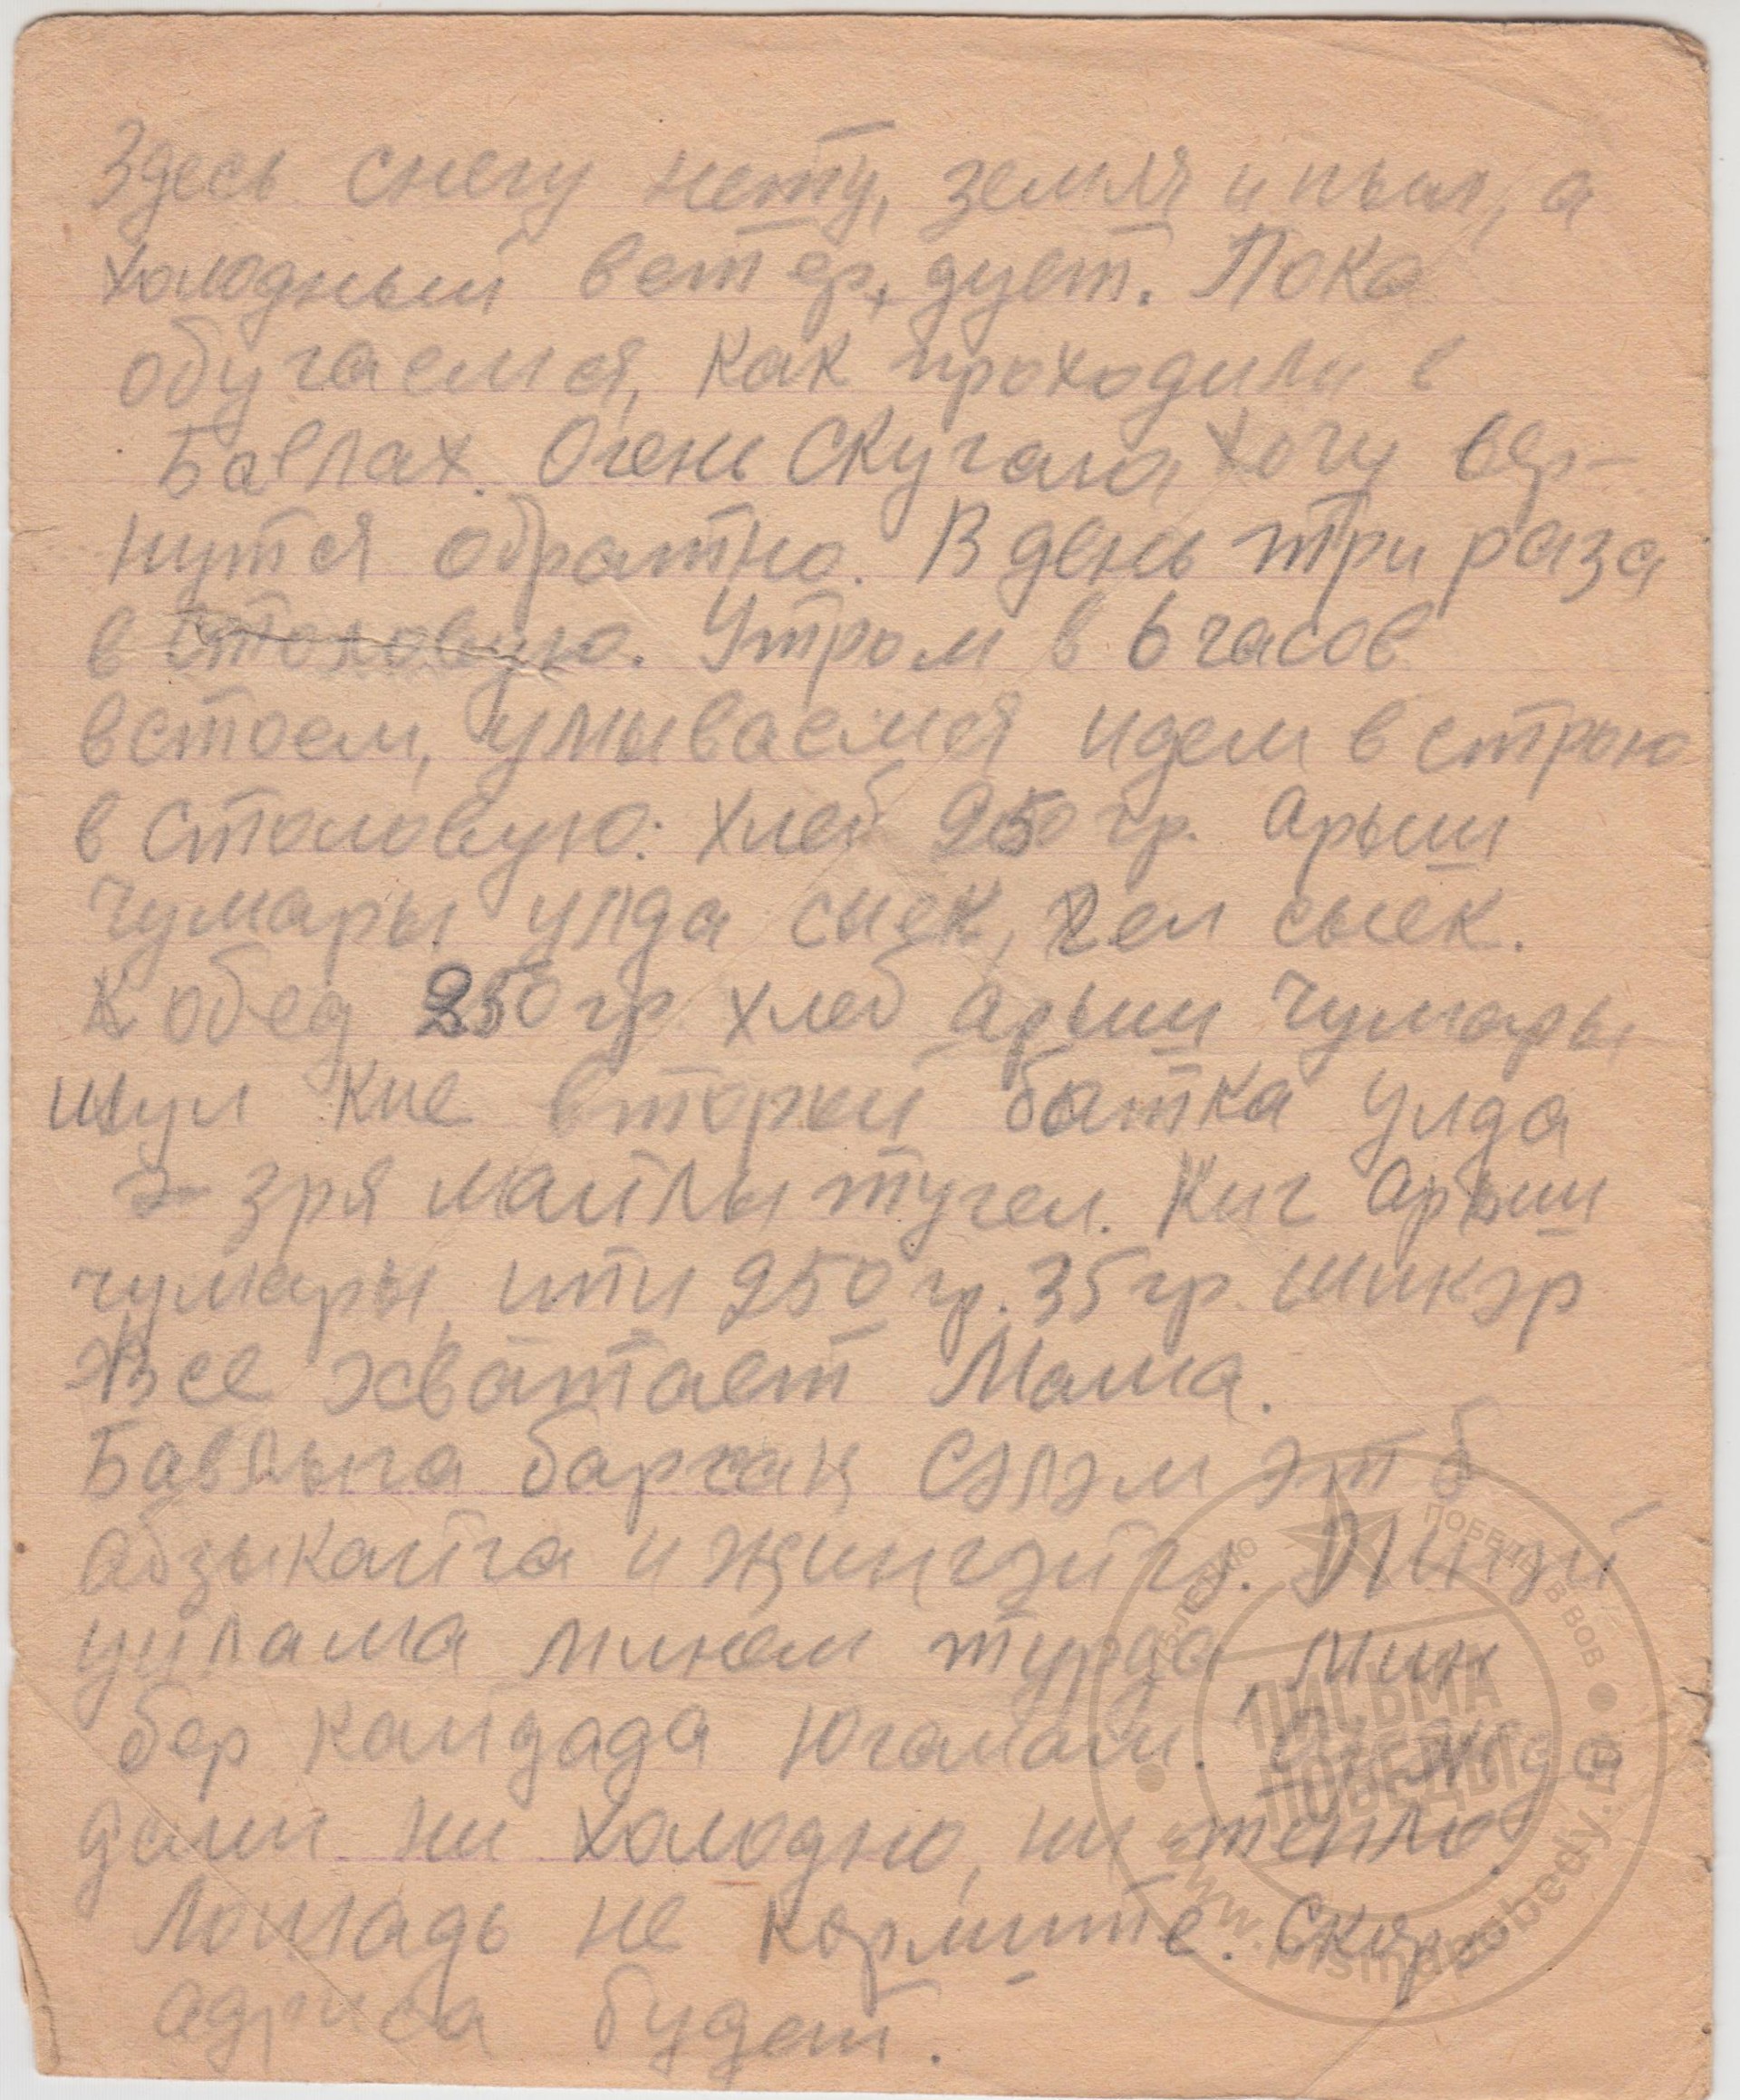 Здесь снегу нету, земля и пыл, а
холодный ветер, дует. Пока
обучаемся, как проходили в
Бавлах. Очень скучала хочу вер-
нутся обратно. В день три раза
в столовую. Утром в 6 часов
встаем, умываемся идем в строю
в столовую: хлеб 250 гр. арыш
чумары улда сыек, чел сыек.
К обед 250 гр хлеб арыш чумары
шул кие вторый ботка улда
зря майлы тугел. Кич арыш
чумары, ипи 250 гр. 35 гр. шикэр
Все хватает Мама.
Бавлыга баргач сэлэм эт
абзыкайга и җингэйгэ. Энкэй
уйлама минем турда, мин
бер кайдада югалмам.
дали ни холодно, ни тепло.
Лошадь не кормите. Скоро
адриса будет.
ПИСЬМА
ПОБЕДЫ
www.pismapobedy.ru